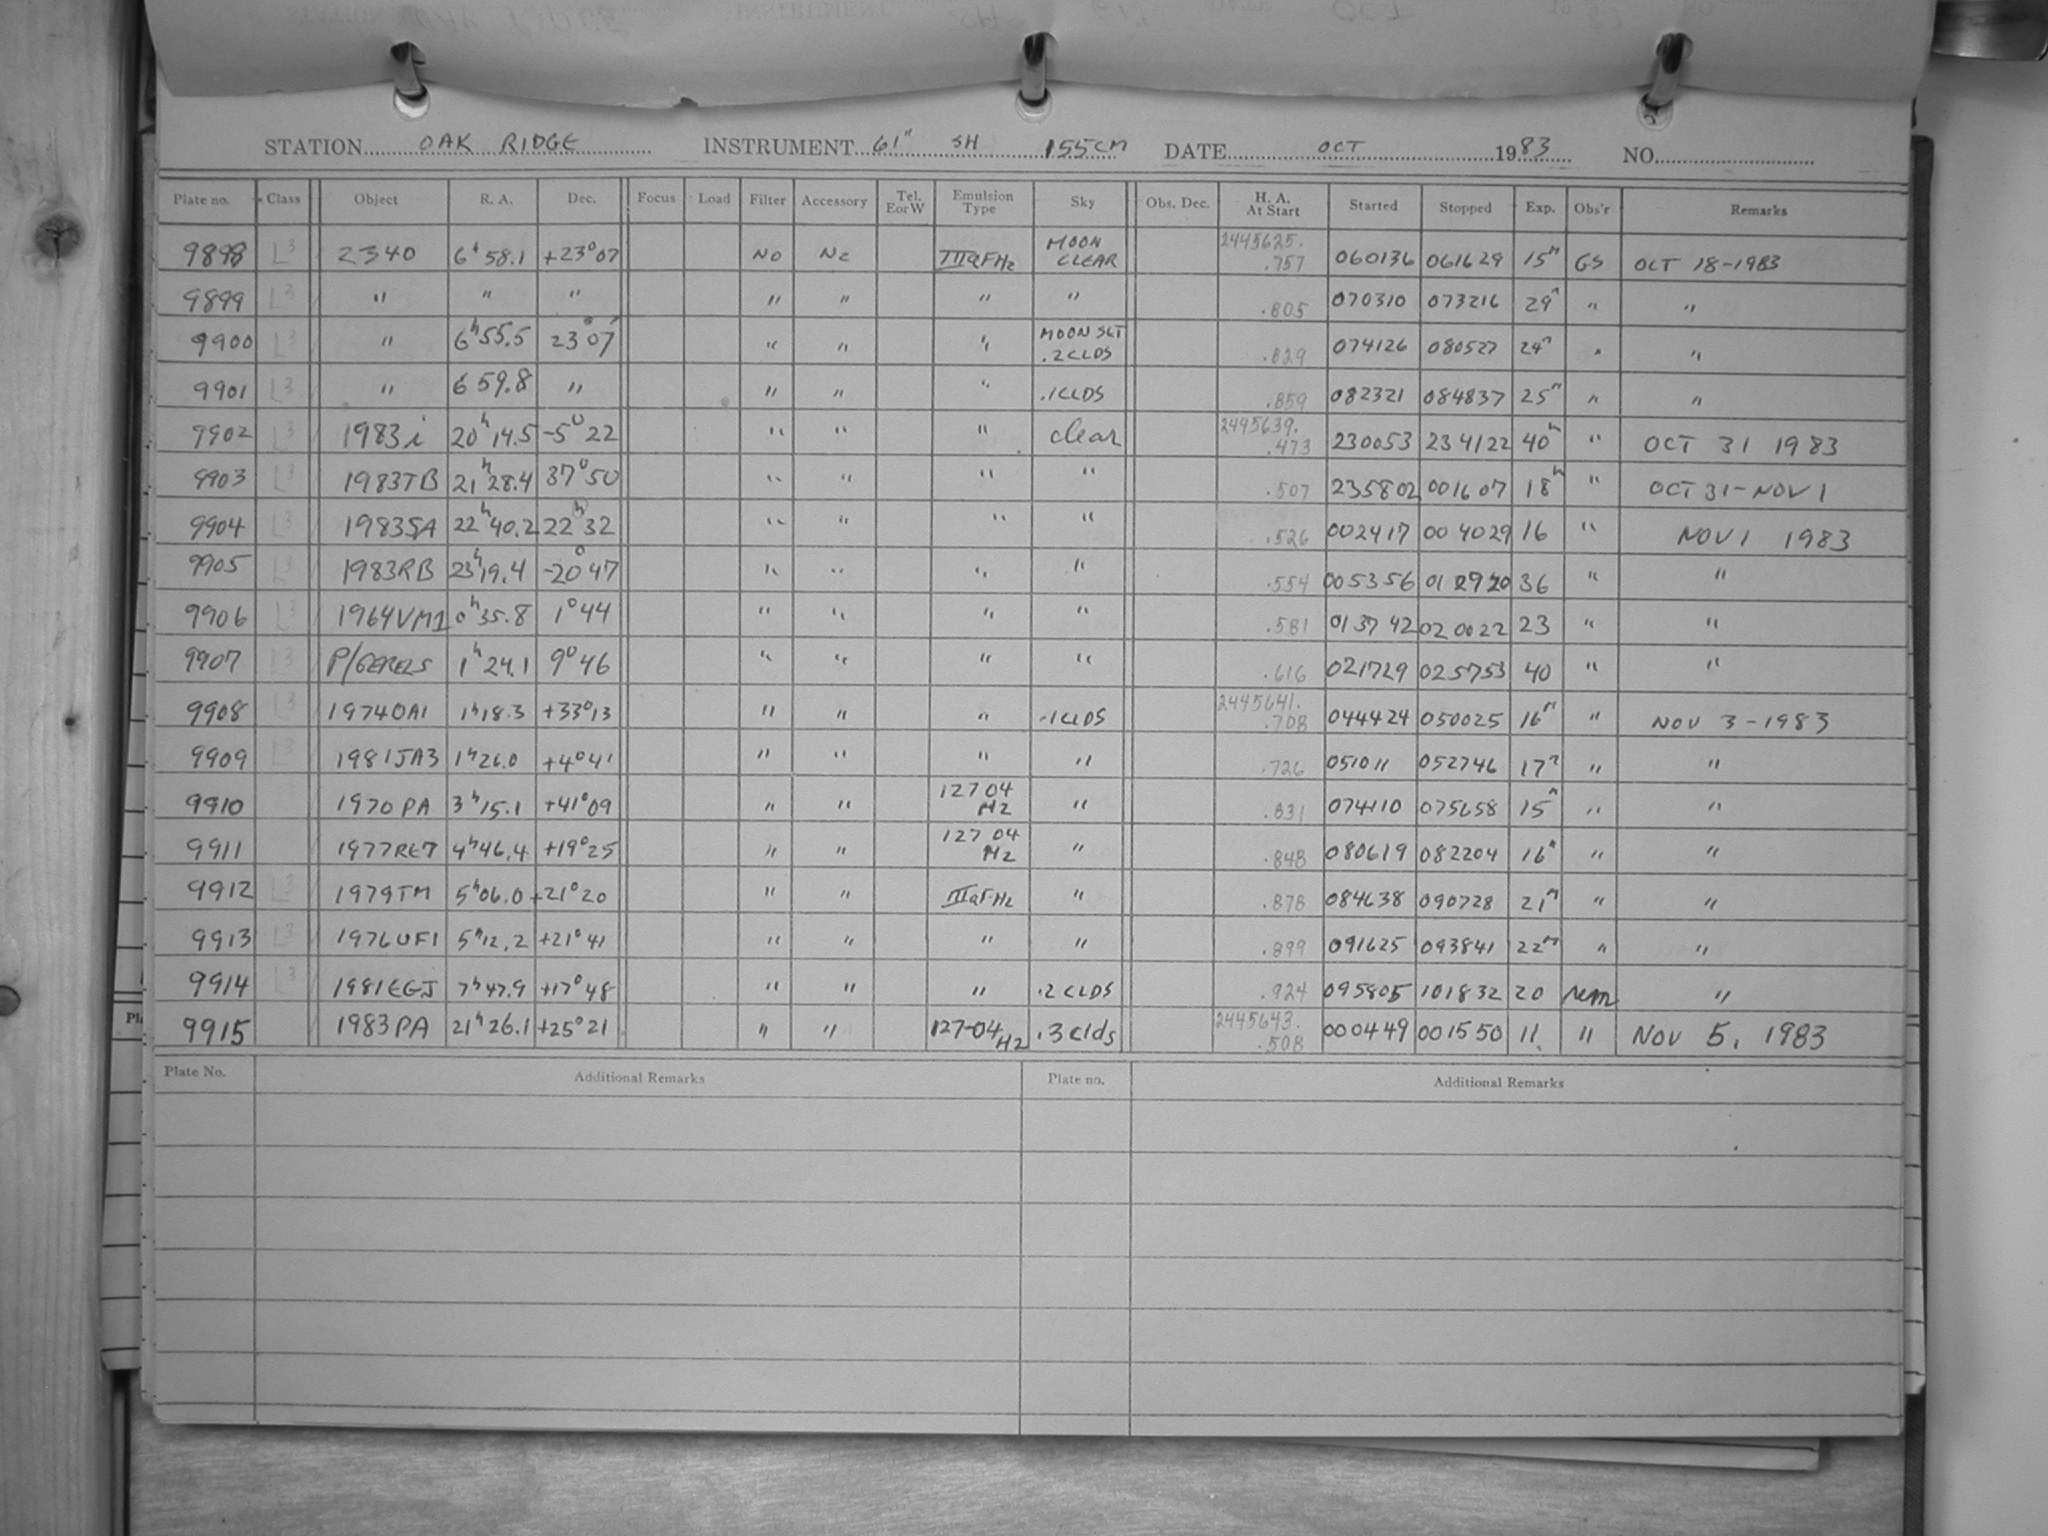 STATION OAK RIDGE INSTRUMENT 61" SH 155CM DATE OCT 1983 NO.
Plate no. Class Object R. A. Dec. Focus Load Filter Accessory Tel. E or W Emulsion Type Sky Obs. Dec. H. A. At Start Started Stopped Exp. Obs'r Remarks
9898 L3 2340 6h 58.1 +23°07 NO N2 IIIaFH2 MOON CLEAR 2445625. .757 060136 061629 15m GS OCT 18-1983
9899 L3 " " " " " " " .805 070310 073216 29m " "
9900 L3 " 6h55.5 23°07' " " " MOON SET .2CLDS .829 074126 080527 24m " "
9901 L3 " 6 59.8 " " " " .1CLDS .859 082321 084837 25m " "
9902 L3 1983i 20h14.5 -5°22 " " " clear 2445639. .473 230053 234122 40m " OCT 31 1983
9903 L3 1983TB 21h28.4 37°50 " " " " .507 235802 001607 18m " OCT 31-NOV 1
9904 L3 1983SA 22h40.2 22°32 " " " " .526 002417 004029 16 " NOV 1 1983
9905 L3 1983RB 23h19.4 -20°47 " " " " .554 005356 012920 36 " "
9906 L3 1964VM1 0h35.8 1°44 " " " " .581 013742 020022 23 " "
9907 L3 P/GERELS 1h24.1 9°46 " " " " .616 021729 025753 40 " "
9908 L3 1974OA1 1h18.3 +33°13 " " " .1CLDS 2445641. .708 044424 050025 16m " NOV 3-1983
9909 L3 1981JA3 1h26.0 +4°41 " " " " .726 051011 052746 17m " "
9910 1970 PA 3h15.1 +41°09 " " 127 04 H2 " .831 074110 075658 15m " "
9911 1977RE7 4h46.4 +19°25 " " 127 04 H2 " .848 080619 082204 16m " "
9912 L3 1979TM 5h06.0 +21°20 " " IIIaFH2 " .878 084638 090728 21m " "
9913 L3 1976UF1 5h12.2 +21°41 " " " " .899 091625 093841 22m " "
9914 L3 1981EGJ 7h47.9 +17°48 " " " .2 CLDS .924 095805 101832 20 "
9915 1983PA 21h26.1 +25°21 " " 127-04 H2 .3 clds 2445643. .508 000449 001550 11 " NOV 5, 1983
Plate No. Additional Remarks Plate no. Additional Remarks